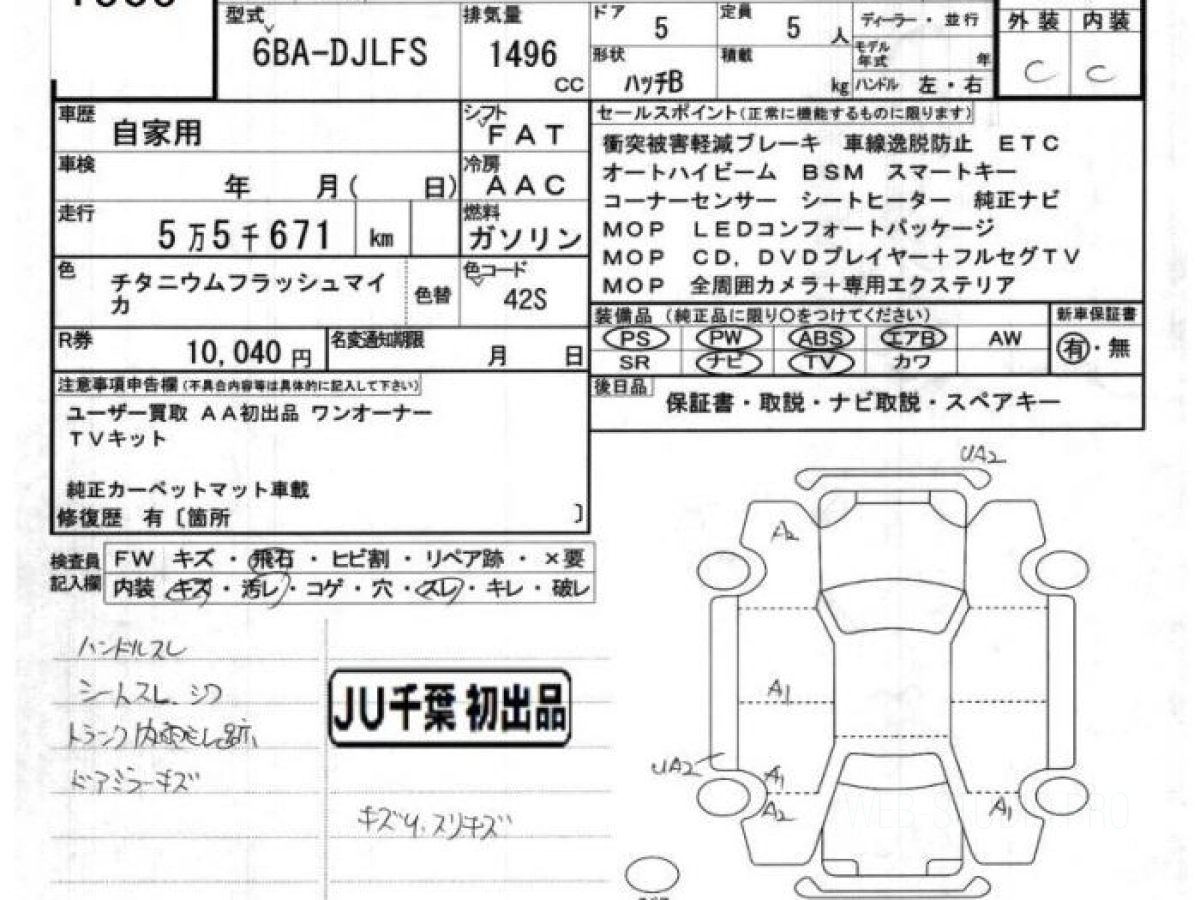 型式 排気量 ドア 5 定員 5 人 ディーラー・並行 外装 内装
6BA-DJLFS 1496 CC 形状 ハッチB 積載 kg モデル年式 年 C C
ハンドル 左・右
車歴 自家用 シフト FAT セールスポイント(正常に機能するものに限ります)
車検 年 月( 日) 冷房 AAC 衝突被害軽減ブレーキ 車線逸脱防止 ETC
走行 5万5千671 km 燃料 ガソリン オートハイビーム BSM スマートキー
コーナーセンサー シートヒーター 純正ナビ
MOP LEDコンフォートパッケージ
MOP CD,DVDプレイヤー+フルセグTV
MOP 全周囲カメラ+専用エクステリア
色 チタニウムフラッシュマイカ 色替 色コード 42S
装備品(純正品に限り〇をつけてください) 新車保証書
PS PW ABS エアB AW 有・無
SR ナビ TV カワ
R券 10,040円 名変通知期限 月 日
注意事項申告欄(不具合内容等は具体的に記入して下さい) 後日品 保証書・取説・ナビ取説・スペアキー
ユーザー買取 AA初出品 ワンオーナー
TVキット
純正カーペットマット車載
修復歴 有〔箇所 〕
検査員記入欄 FW キズ・飛石・ヒビ割・リペア跡・×要
内装 キズ・汚レ・コゲ・穴・スレ・キレ・破レ
UA2
A2
ハンドルスレ
シートスレ、シワ
JU千葉 初出品
A1
トランク内
UA2
ドアミラーキズ
A1
A2
A1
スリキズ
WEB-STUDIO.PRO